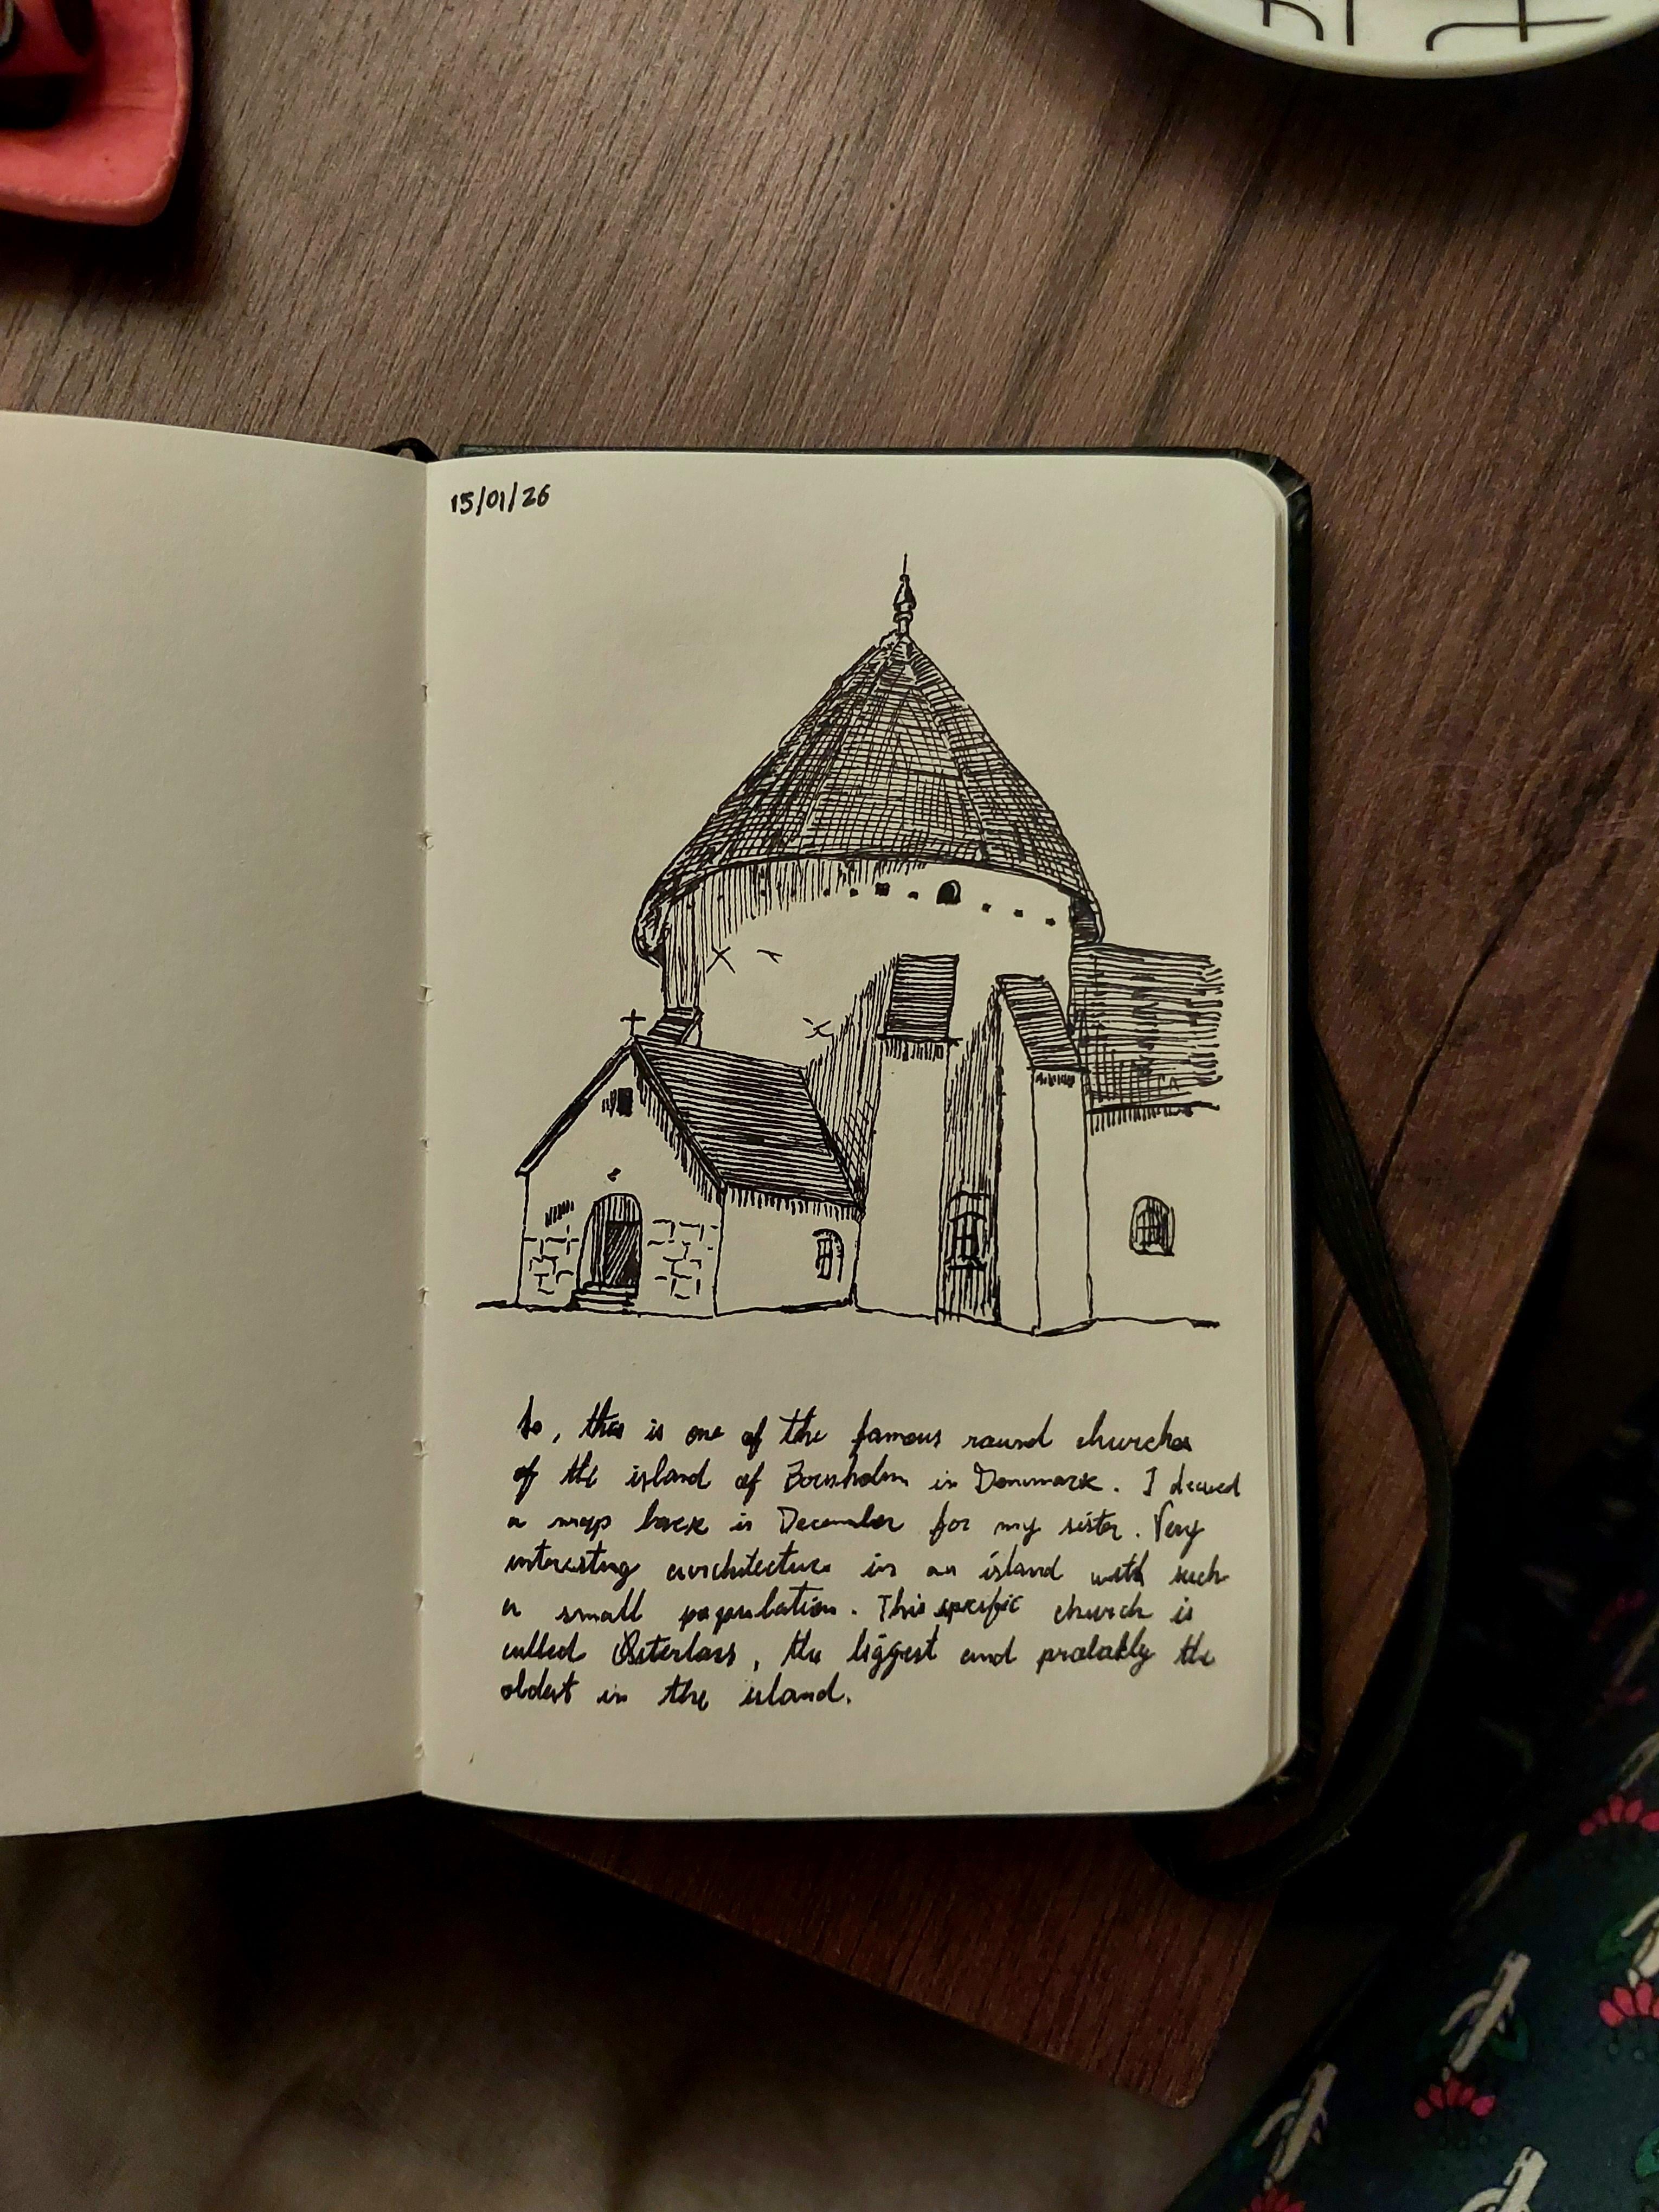 15/01/26
So, this is one of the famous round churches
of the island of Bornholm in Denmark. I drawed
a map back in December for my sister. Very
interesting architecture in an island with such
a small population. This specific church is
called Østerlars, the biggest and probably the
oldest in the island.